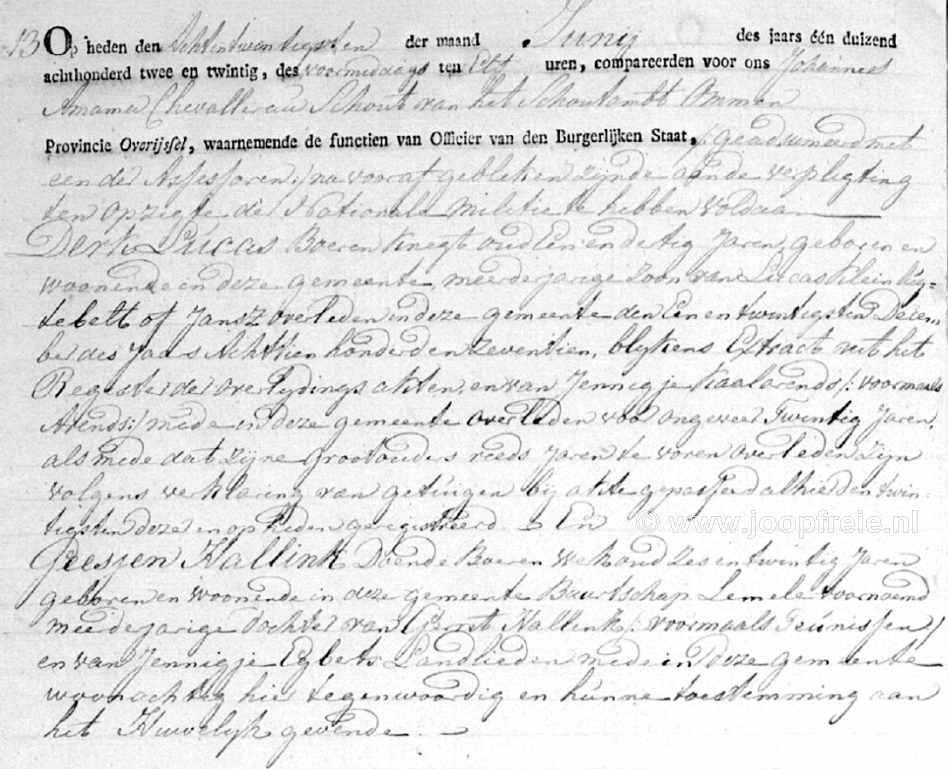 13 Op heden den Achtentwintigsten der maand Junij des jaars één duizend
achthonderd twee en twintig, des voormiddags ten Elf uren, compareerden voor ons Johannes
Amama Chevallerau Schout van het Schoutambt Ommen
Provincie Overijssel, waarnemende de functien van Officier van den Burgerlijken Staat, /: geadsumeerd met
een der Assessoren :/ na vooraf gebleken zijnde aan de verpligting
ten opzigte de Nationale militie te hebben voldaan
Derk Lucas Boeren Knegt oud Een en dertig Jaren, geboren en
woonende in deze gemeente, meerderjarige Zoon van Lucas Klein
tebelt of Jansz overleden in deze gemeente den Een en twintigsten Decem
ber des Jaars Achttien honderd en Zeventien, blykens Extract uit het
Register der overlydings akten, en van Jennigje Kaalarends /: voormaals
Arends :/ mede in deze gemeente overleden voor ongeveer Twintig Jaren,
als mede dat zijne Grootouders reeds Jaren te voren overleden zyn
volgens verklaring van getuigen bij akte gepasseerd alhier den twin
tigsten dezer en op heden geregistreerd _ En
Geesjen Hallink Doende Boeren werk oud Zes en twintig Jaren
geboren en woonende in deze gemeente Buurtschap Lemele voornoemd
meerderjarige Dochter van Gerrit Hallink /: voormaals Teunissen :/
en van Jennigje Egberts Landlieden mede in deze gemeente
woonachtig hier tegenwoordig en hunne toestemming aan
het Huwelyk gevende. _
© www.joopfreie.nl